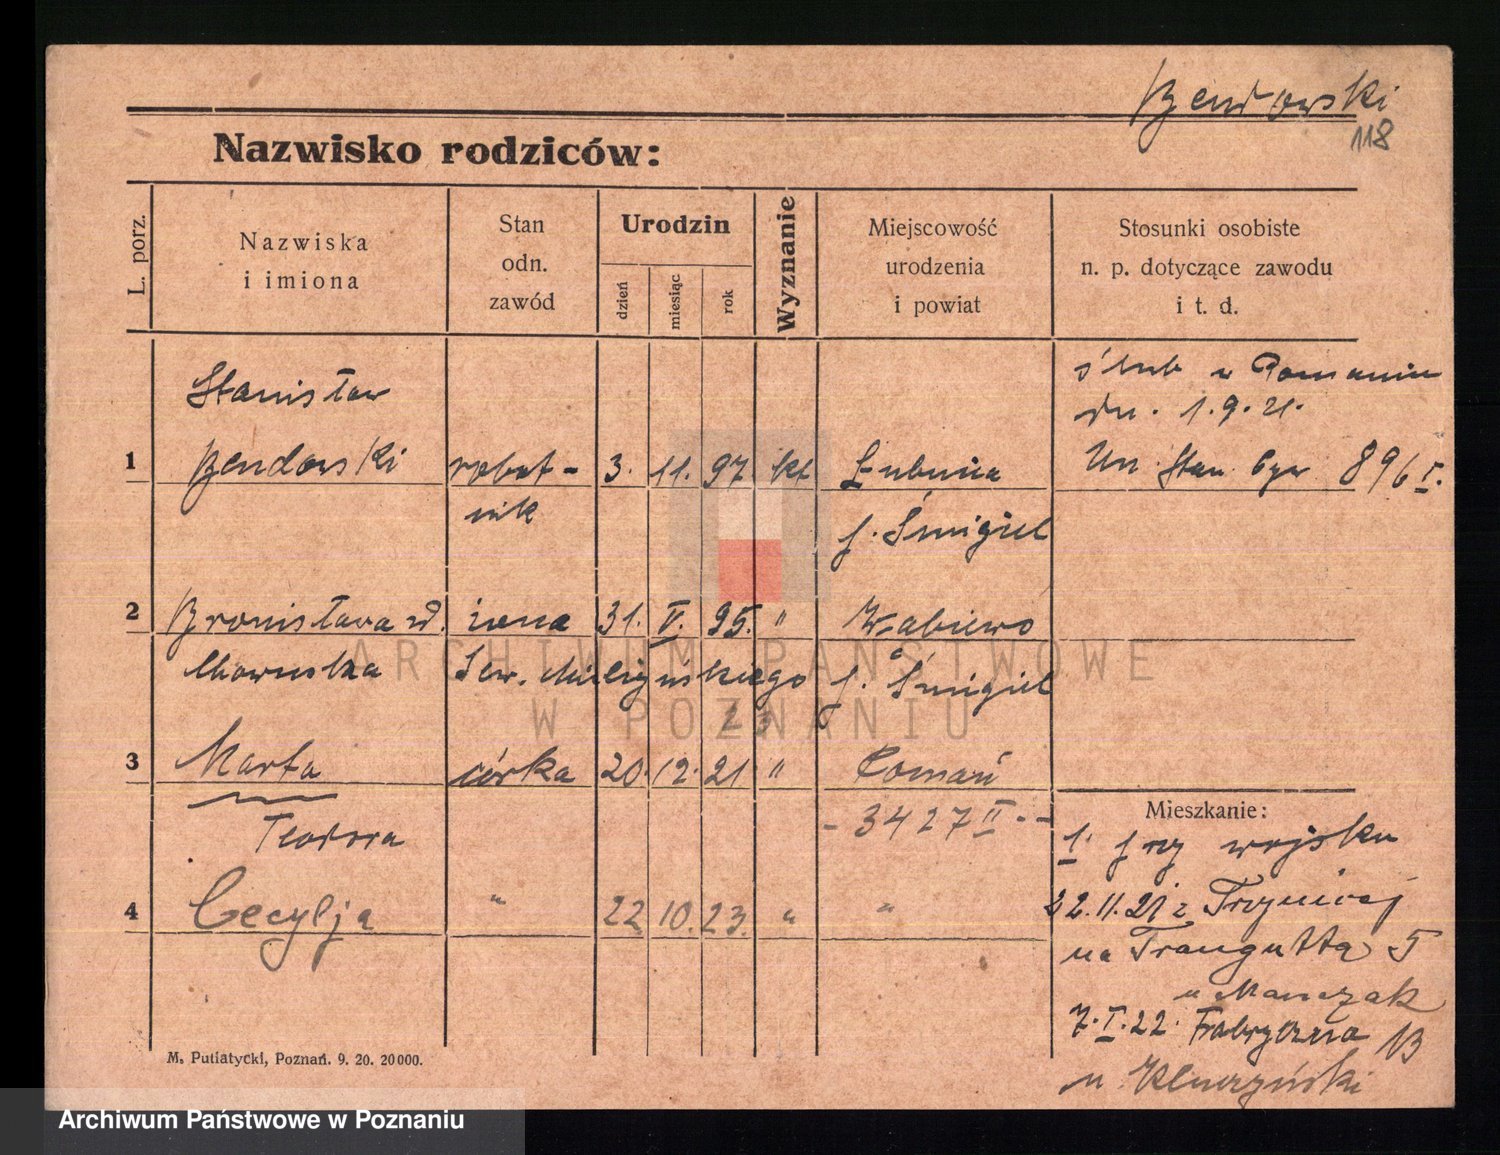 Bendowski
118
Nazwisko rodziców:
L. porz.
Nazwiska
i imiona
Stan
odn.
zawód
Urodzin
dzień
miesiąc
rok
Wyznanie
Miejscowość
urodzenia
i powiat
Stosunki osobiste
n. p. dotyczące zawodu
i t. d.
Stanisław
ślub w Poznaniu
dn. 1.9.21.
1 Bendowski robot- 3. 11. 97 kt Łubnica
Urz. Stan. Cyw 896 I.
nik
p. Śmigiel
2 Bronisława zd. żona 31. V. 95. "
p. Śmigiel
23
3 Marta córka 20. 12. 21 " Poznań
Teodora
- 3427 II - -
4 Cecylja " 22 10. 23. " "
Mieszkanie:
1. przy wojsku
22.11.21 z
na Traugutta 5
u Manczak
7.I.22. Fabryczna 13
u
M. Putiatycki, Poznań. 9. 20. 20000.
ARCHIWUM PAŃSTWOWE
W POZNANIU
Archiwum Państwowe w Poznaniu